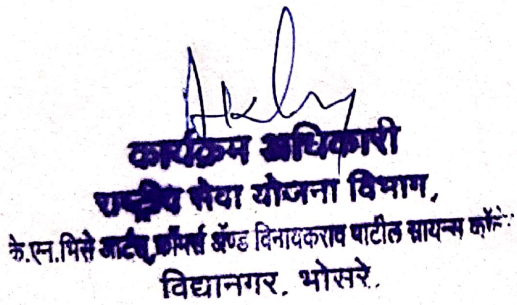 कार्यक्रम अधिकारी
राष्ट्रीय सेवा योजना विभाग,
के.एन.भिसे आर्टस्, कॉमर्स ॲण्ड विनायकराव पाटील सायन्स कॉलेज
विद्यानगर, भोसरे.